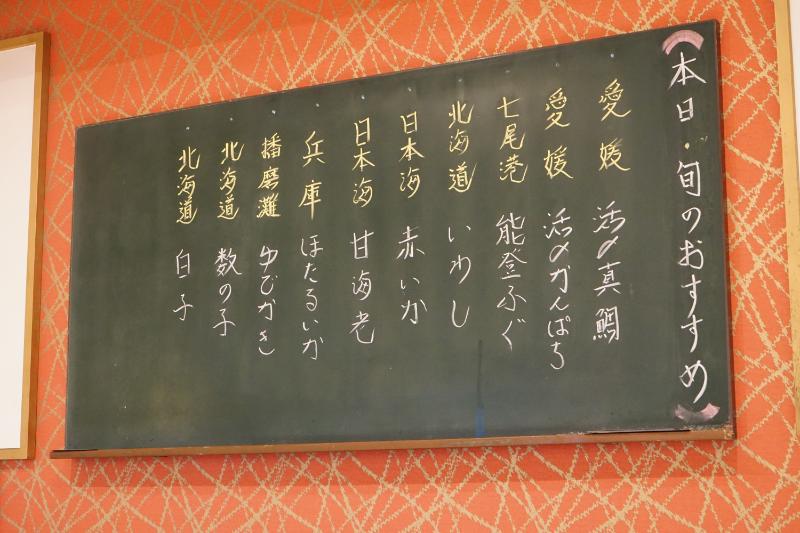 本日・旬のおすすめ
愛媛 活〆真鯛
愛媛 活〆かんぱち
七尾港 能登ふぐ
北海道 いわし
日本海 赤いか
日本海 甘海老
兵庫 ほたるいか
播磨灘 ゆでかき
北海道 数の子
北海道 白子